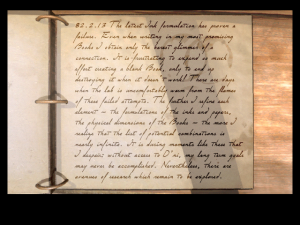 82.2.13 The latest Ink formulation has proven a
failure. Even when writing in my most promising
Books I obtain only the barest glimmer of a
connection. It is frustrating to expend so much
effort creating a blank Book, only to end up
destroying it when it doesn't work! There are days
when the lab is uncomfortably warm from the flames
of these failed attempts. The further I refine each
element – the formulations of the inks and papers,
the physical dimensions of the Books – the more I
realize that the list of potential combinations is
nearly infinite. It is during moments like these that
I despair; without access to D'ni, my long term goals
may never be accomplished. Nevertheless, there are
avenues of research which remain to be explored.